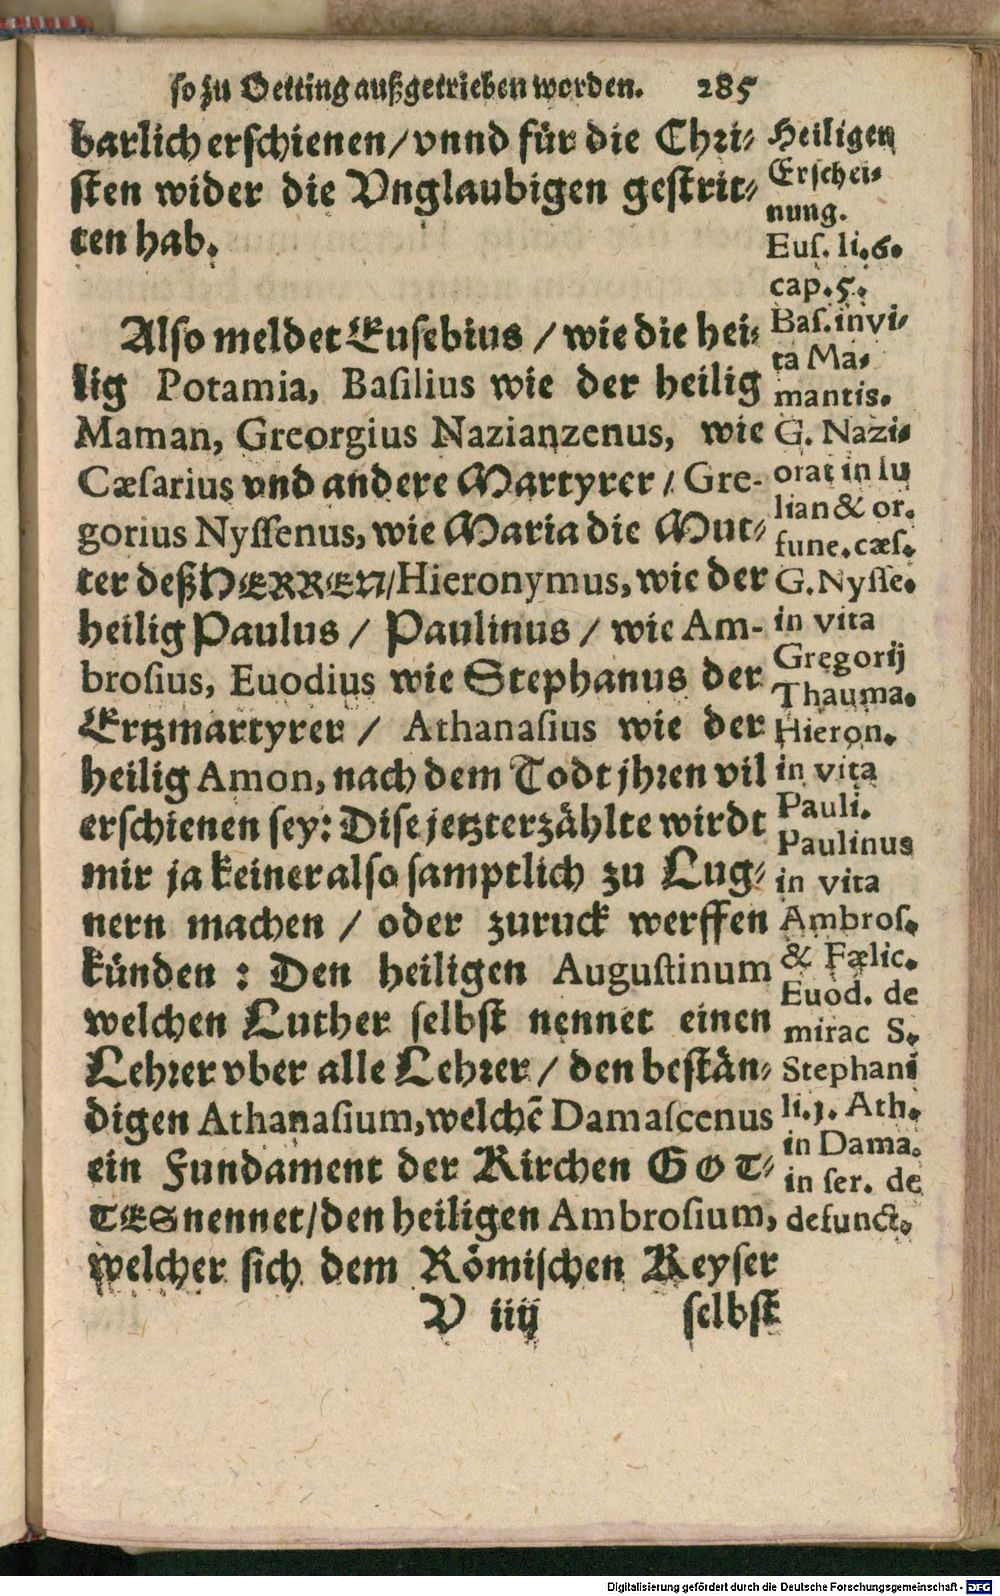 so zu Oetting außgetrieben worden. 285
barlich erschienen/vnnd für die Chri-
sten wider die Vnglaubigen gestrit-
ten hab.
Also meldet Eusebius / wie die hei-
lig Potamia, Basilius wie der heilig
Maman, Greorgius Nazianzenus, wie
Cæsarius vnd andere Martyrer / Gre-
gorius Nyssenus, wie Maria die Mut-
ter deß HERREN/Hieronymus, wie der
heilig Paulus / Paulinus / wie Am-
brosius, Euodius wie Stephanus der
Ertzmartyrer / Athanasius wie der
heilig Amon, nach dem Todt jhren vil
erschienen sey: Dise jetzterzählte wirdt
mir ja keiner also samptlich zu Lug-
nern machen / oder zuruck werffen
künden : Den heiligen Augustinum
welchen Luther selbst nennet einen
Lehrer vber alle Lehrer / den bestän-
digen Athanasium, welchẽ Damascenus
ein Fundament der Kirchen GOT-
TES nennet/den heiligen Ambrosium,
welcher sich dem Römischen Keyser
V iiij selbst
Heiligen
Erschei-
nung.
Eus. li.6.
cap.5.
Bas. in vi-
ta Ma-
mantis.
G. Nazi.
orat in Iu
lian & or.
fune. cæs.
G. Nysse.
in vita
Gregorij
Thauma.
Hieron.
in vita
Pauli.
Paulinus
in vita
Ambros.
& Fælic.
Euod. de
mirac S.
Stephani
li.1. Ath.
in Dama.
in ser. de
defunct.
Digitalisierung gefördert durch die Deutsche Forschungsgemeinschaft - DFG